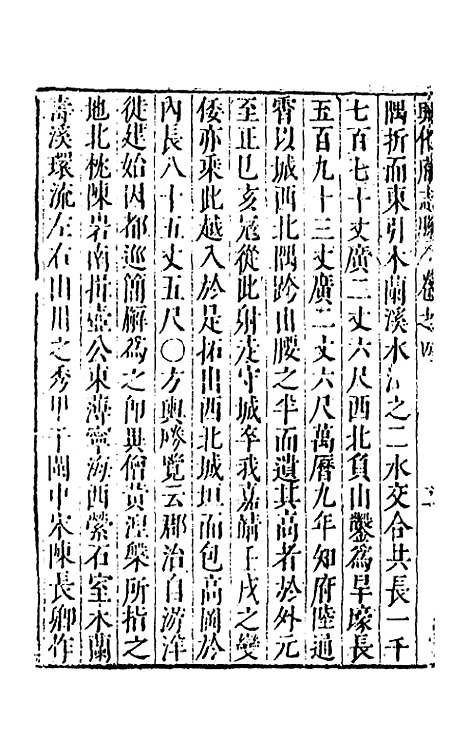 興化府志畧 卷之四
隅折而東引木蘭溪水注之二水交合共長一千
七百七十丈廣二丈六尺西北負山鑿爲旱壕長
五百九十三丈廣二丈六尺萬曆九年知府陸通
霄以城西北隅跨山腰之半而遺其高者於外元
至正己亥寇從此射走守城卒我嘉靖壬戌之變
倭亦乘此越入於是拓出西北城垣而包高岡於
內長八十五丈五尺〇方輿勝覽云郡治自游洋
徙建始因都巡簡廨爲之卽異僧黃涅槃所指之
地北枕陳岩南揖壺公東薄寧海西縈石室木蘭
壽溪環流左右山川之秀甲于閩中宋陳長卿作